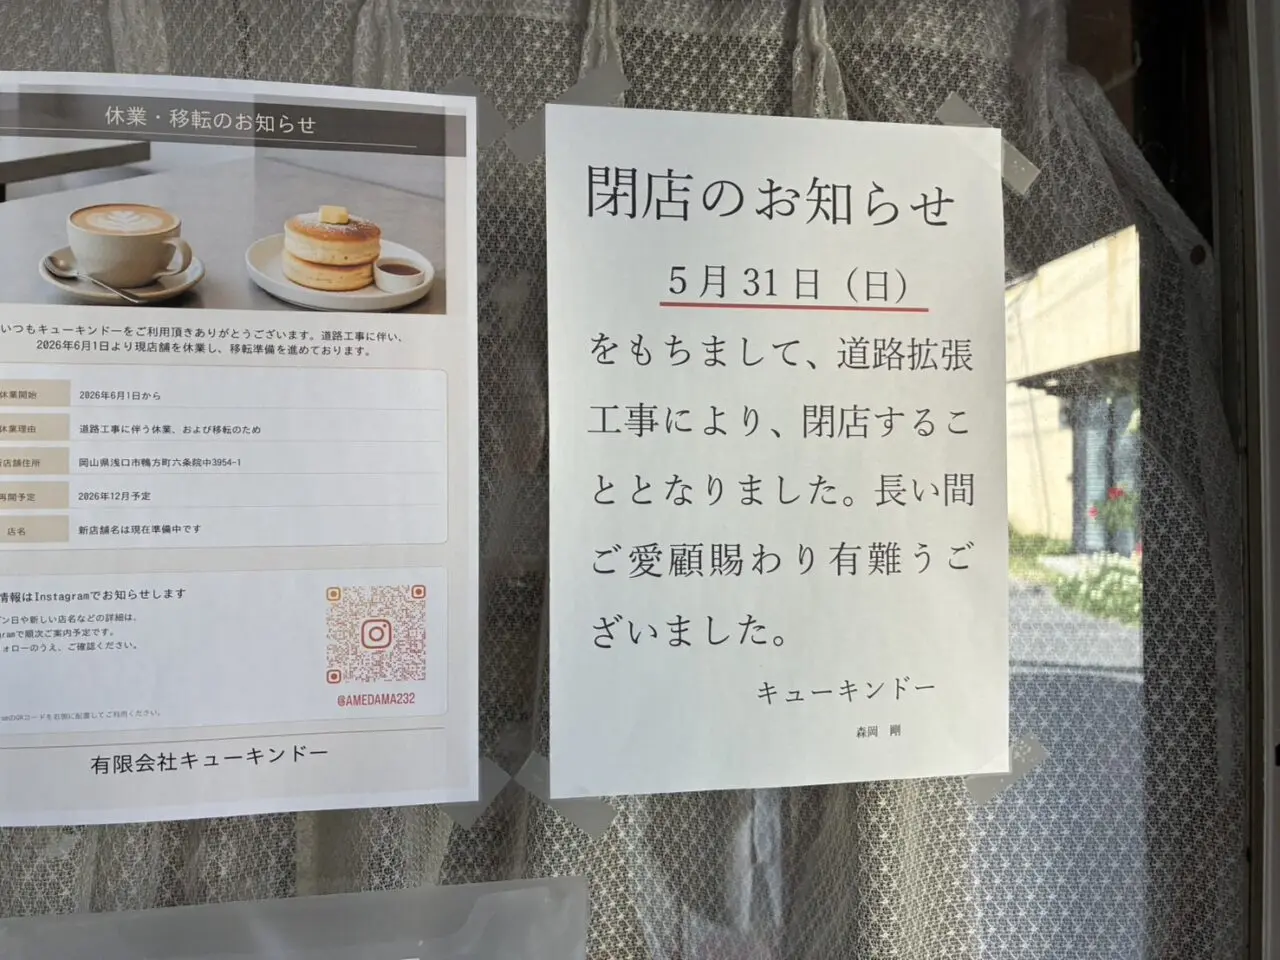 休業・移転のお知らせ
いつもキューキンドーをご利用頂きありがとうございます。道路工事に伴い、
2026年6月1日より現店舗を休業し、移転準備を進めております。
休業開始 2026年6月1日から
休業理由 道路工事に伴う休業、および移転のため
店舗住所 岡山県浅口市鴨方町六条院中3954-1
再開予定 2026年12月予定
店名 新店舗名は現在準備中です
情報はInstagramでお知らせします
日や新しい店名などの詳細は、
gramで順次ご案内予定です。
ォローのうえ、ご確認ください。
@AMEDAMA232
QRコードを右側に配置してご利用ください。
有限会社キューキンドー
閉店のお知らせ
5月31日（日）
をもちまして、道路拡張
工事により、閉店するこ
ととなりました。長い間
ご愛顧賜わり有難うご
ざいました。
キューキンドー
森岡 剛